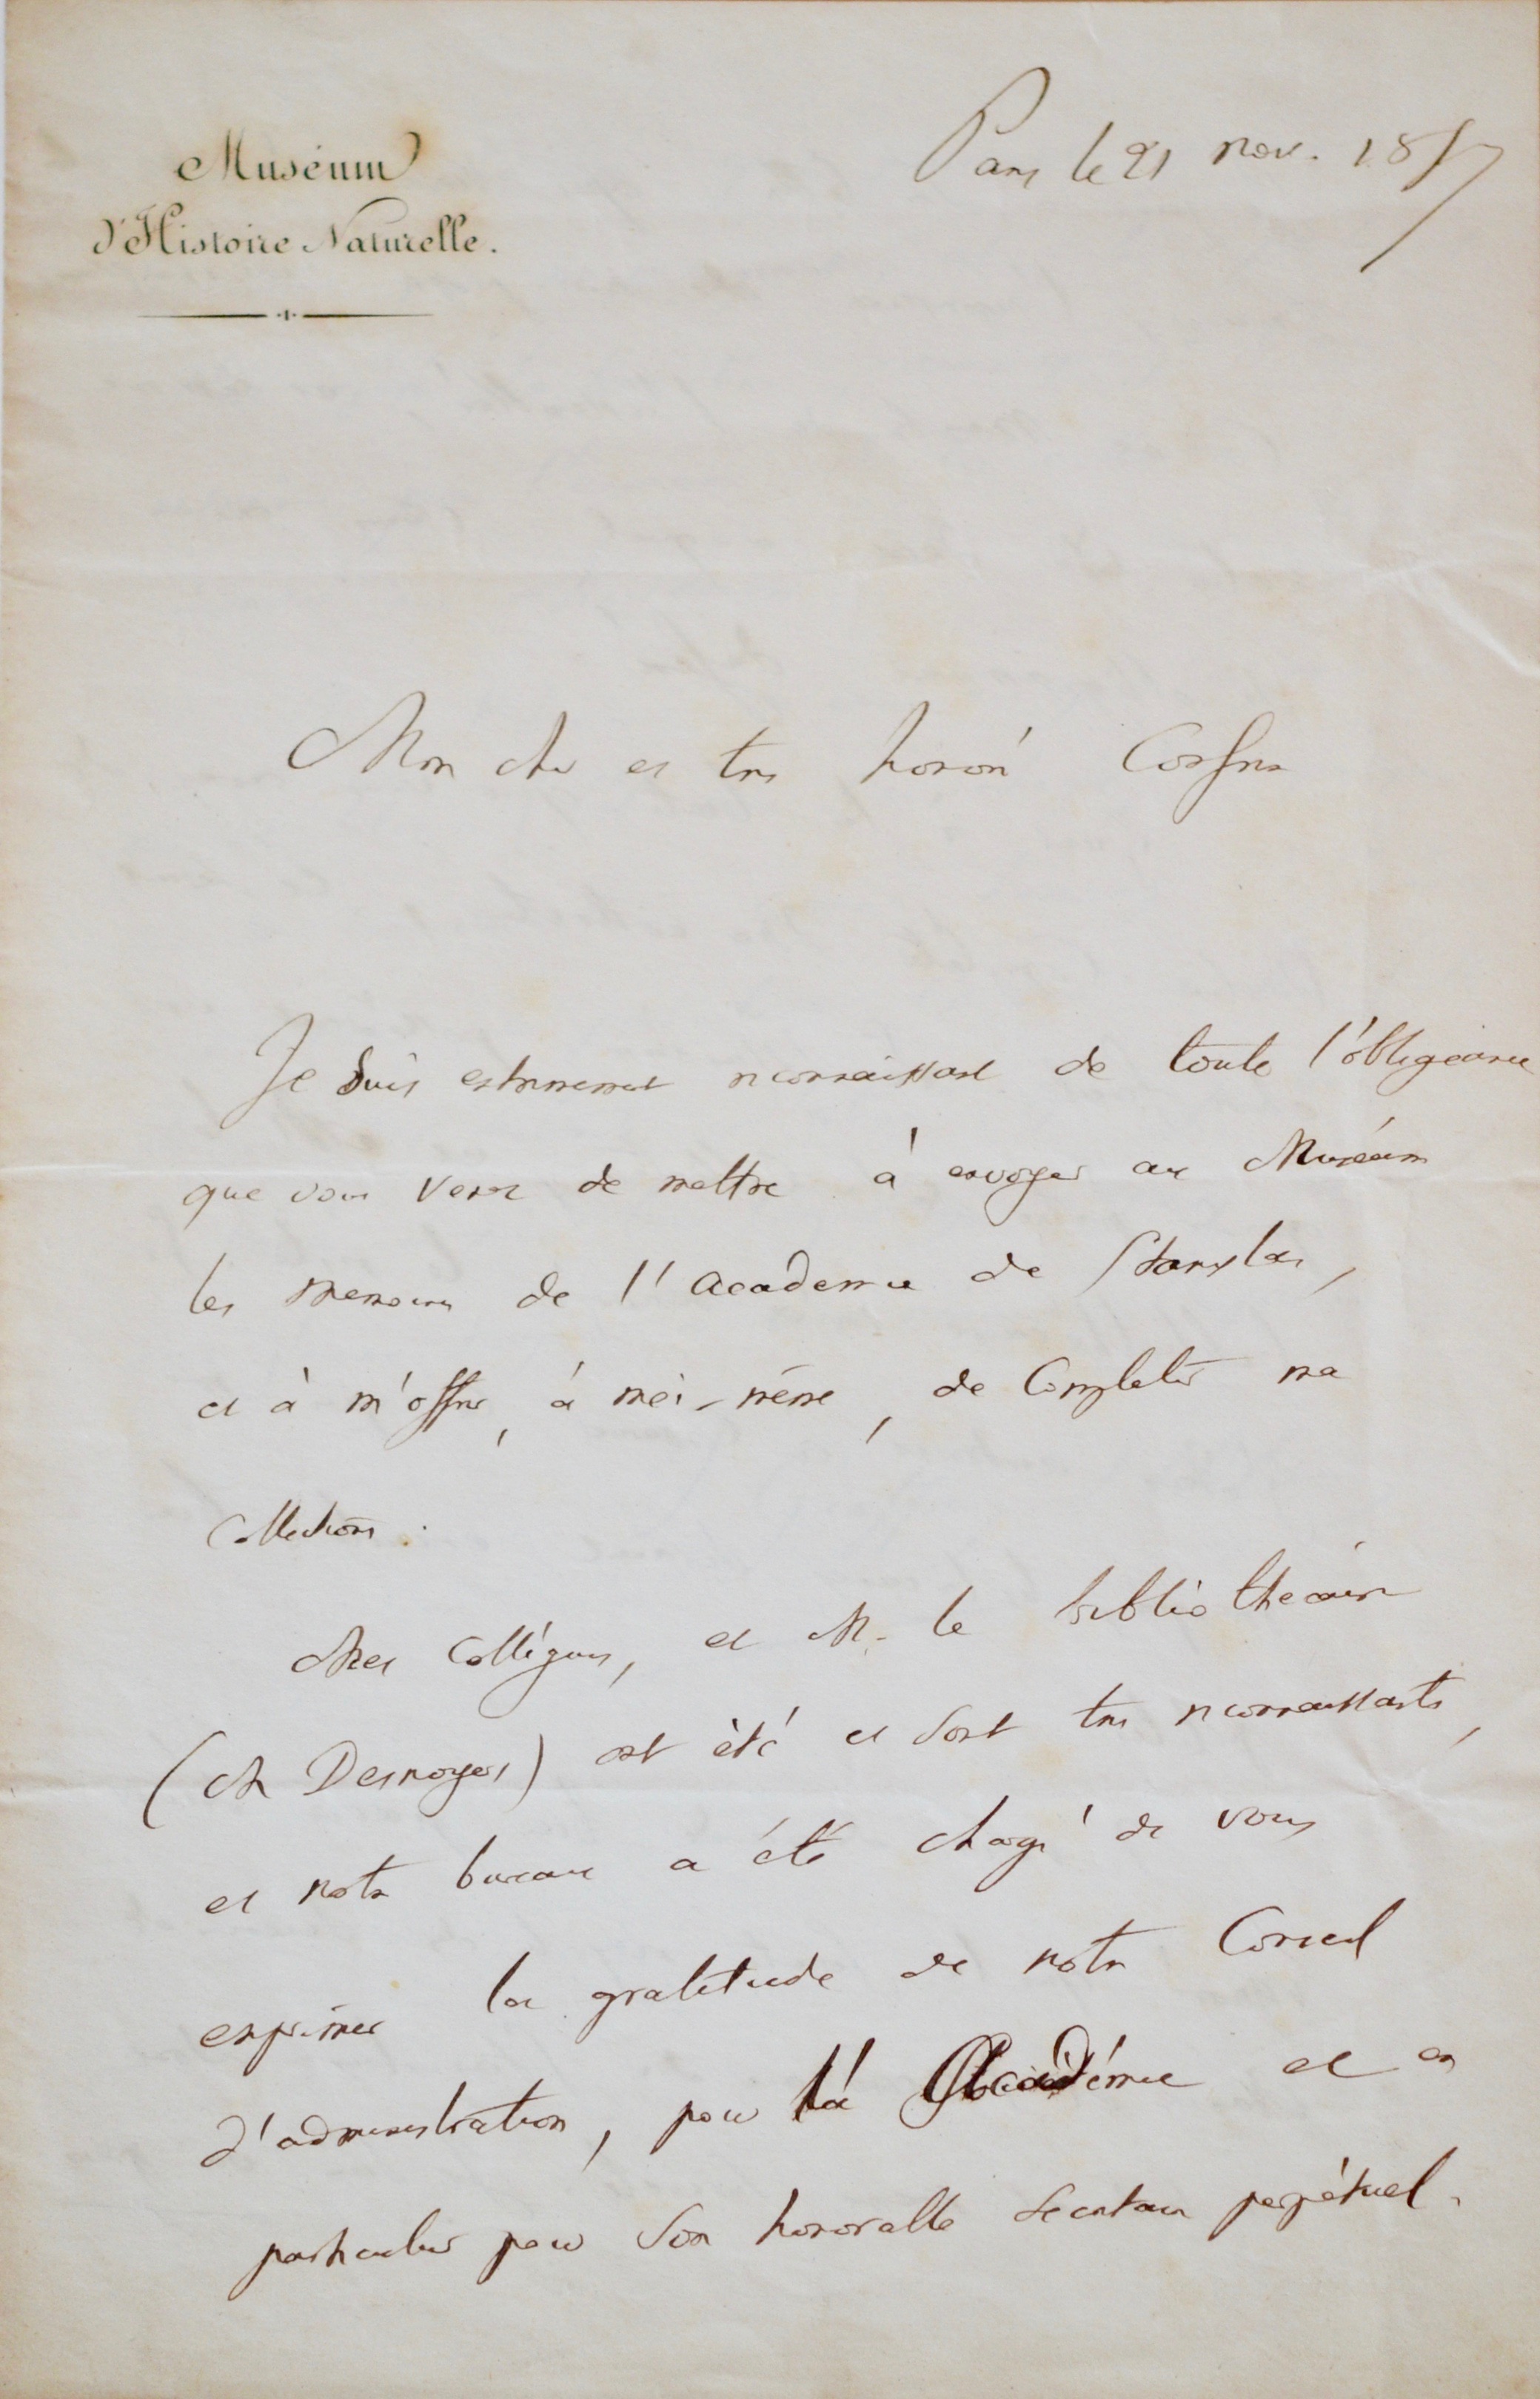 Muséum
d'Histoire Naturelle.
Paris le 21 nov. 1857
Mon cher et très honoré Confrère
Je suis extrêmement reconnaissant de toute l'obligeance
que vous venez de mettre à envoyer au Muséum
les memoires de l'academie de Stanislas,
et à m'offrir, à moi-même, de completer ma
Collection.
Mes Collègues, et M. le bibliothécaire
(M Desnoyers) ont été et sont très reconnaissants,
et notre bureau a été chargé de vous
exprimer la gratitude de notre Conseil
d'administration, pour l'Académie et en
particulier pour son honorable Secretaire perpétuel.